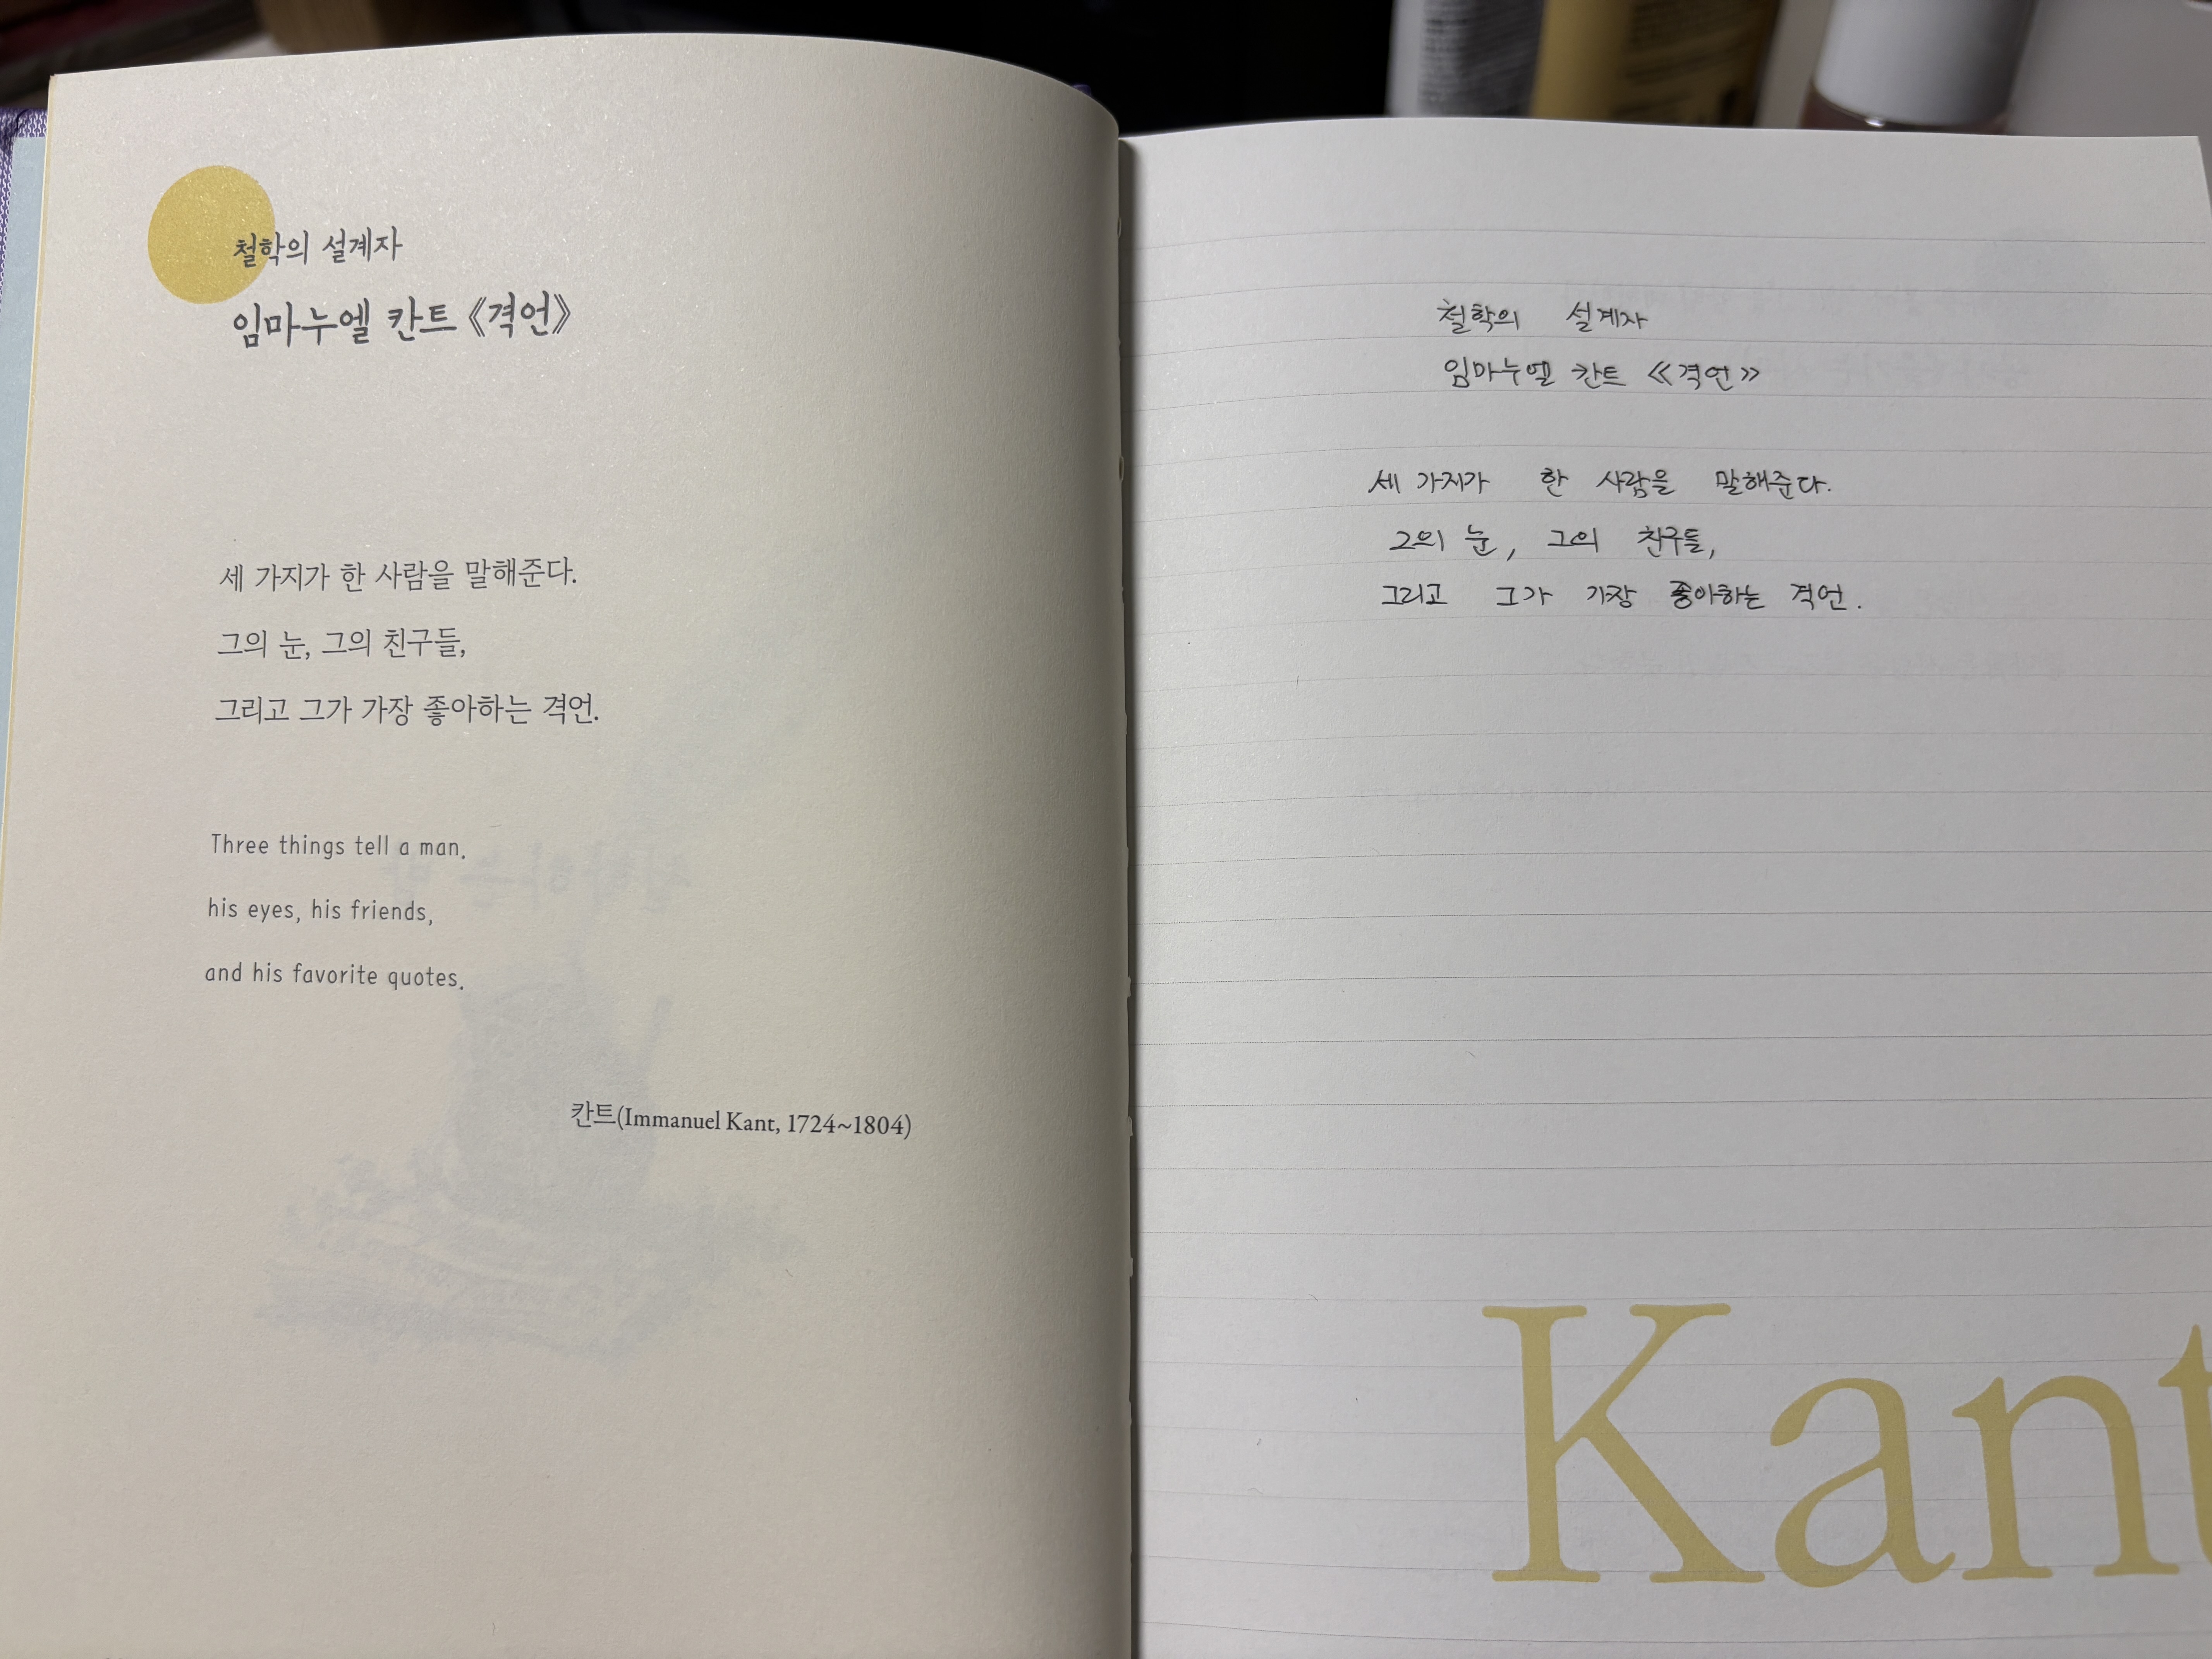 철학의 설계자
임마누엘 칸트 《격언》
세 가지가 한 사람을 말해준다.
그의 눈, 그의 친구들,
그리고 그가 가장 좋아하는 격언.
Three things tell a man.
his eyes, his friends,
and his favorite quotes.
칸트(Immanuel Kant, 1724~1804)
철학의 설계자
임마누엘 칸트 《격언》
세 가지가 한 사람을 말해준다.
그의 눈, 그의 친구들,
그리고 그가 가장 좋아하는 격언.
Kant